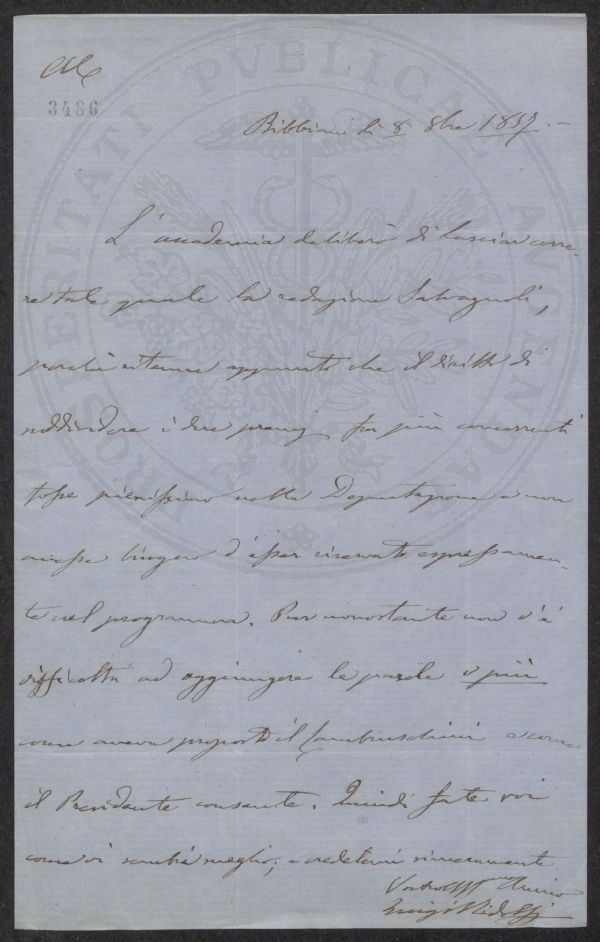 3486
Bibbiani li 8 8bre 1857.
L'accademia deliberò di lasciar corre-
re tale quale la redazione Salvagnoli,
perchè ritenne appunto che il diritto di
suddividere i due premj fra più concorrenti
fosse pienissimo nella Deputazione e non
avesse bisogno d'esser riservato espressamen-
te nel programma. Pur nonostante non v'è
difficoltà ad aggiungere le parole o più
come aveva proposto il Lambruschini e come
il Presidente consente. Quindi fate voi
come vi sembra meglio, e credetemi sinceramente
Vostro Affmo Amico
Luigi Ridolfi
PROSPERITATI PVBLICAE AVGENDAE